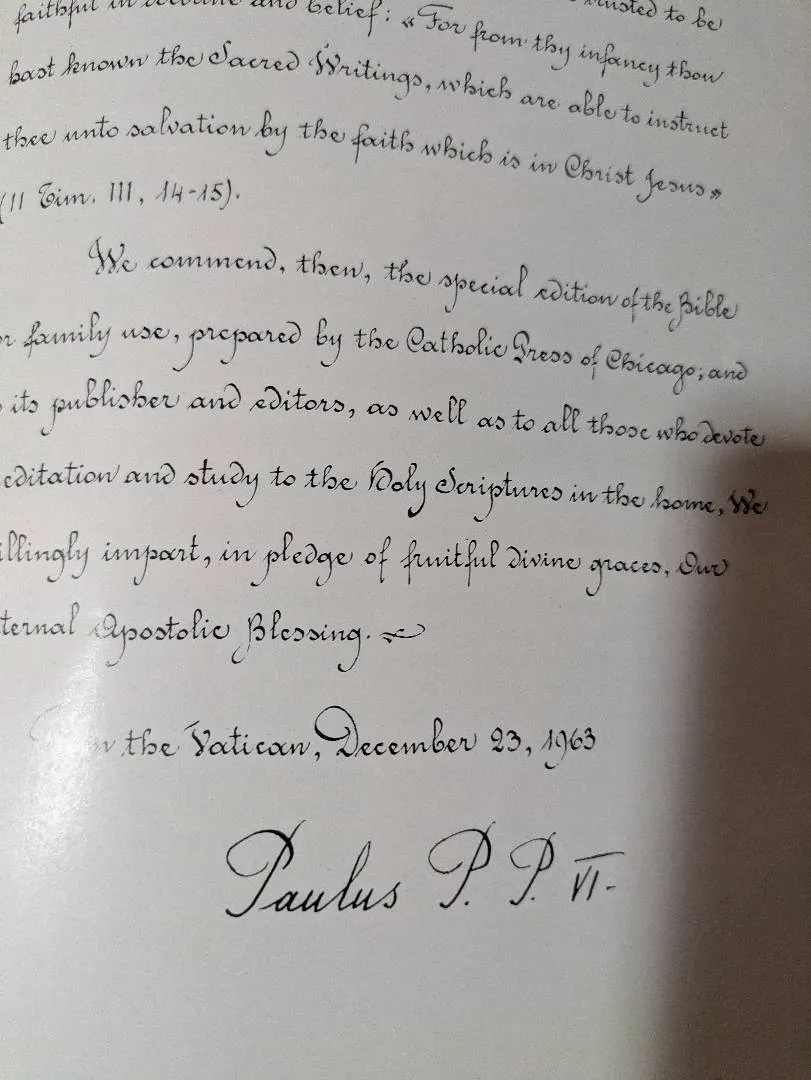 faithful in doctrine and belief: «For from thy infancy thou
hast known the Sacred Writings, which are able to instruct
thee unto salvation by the faith which is in Christ Jesus»
(II Tim. III, 14-15).
We commend, then, the special edition of the Bible
family use, prepared by the Catholic Press of Chicago; and
its publisher and editors, as well as to all those who devote
editation and study to the Holy Scriptures in the home, We
illingly impart, in pledge of fruitful divine graces, Our
ternal Apostolic Blessing.
the Vatican, December 23, 1963
Paulus P. P. VI.